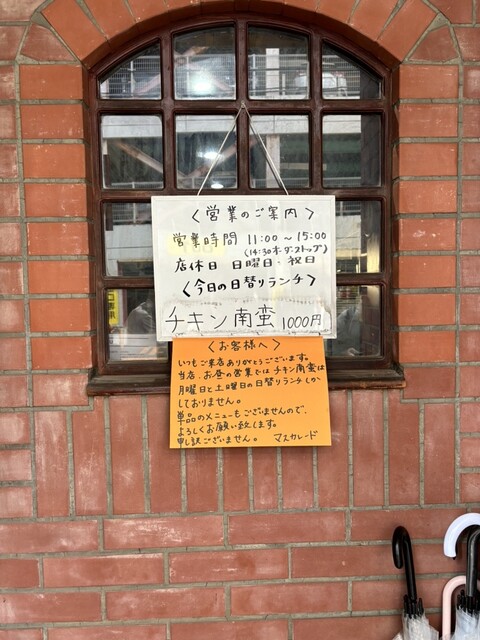 〈営業のご案内〉
営業時間 11:00～15:00
(14:30オーダーストップ)
店休日 日曜日・祝日
〈今日の日替りランチ〉
チキン南蛮 1000円
〈お客様へ〉
いつもご来店ありがとうございます。
当店、お昼の営業ではチキン南蛮は
月曜日と土曜日の日替りランチしか
しておりません。
単品のメニューもございませんので、
よろしくお願い致します。
申し訳ございません。 マスカレード